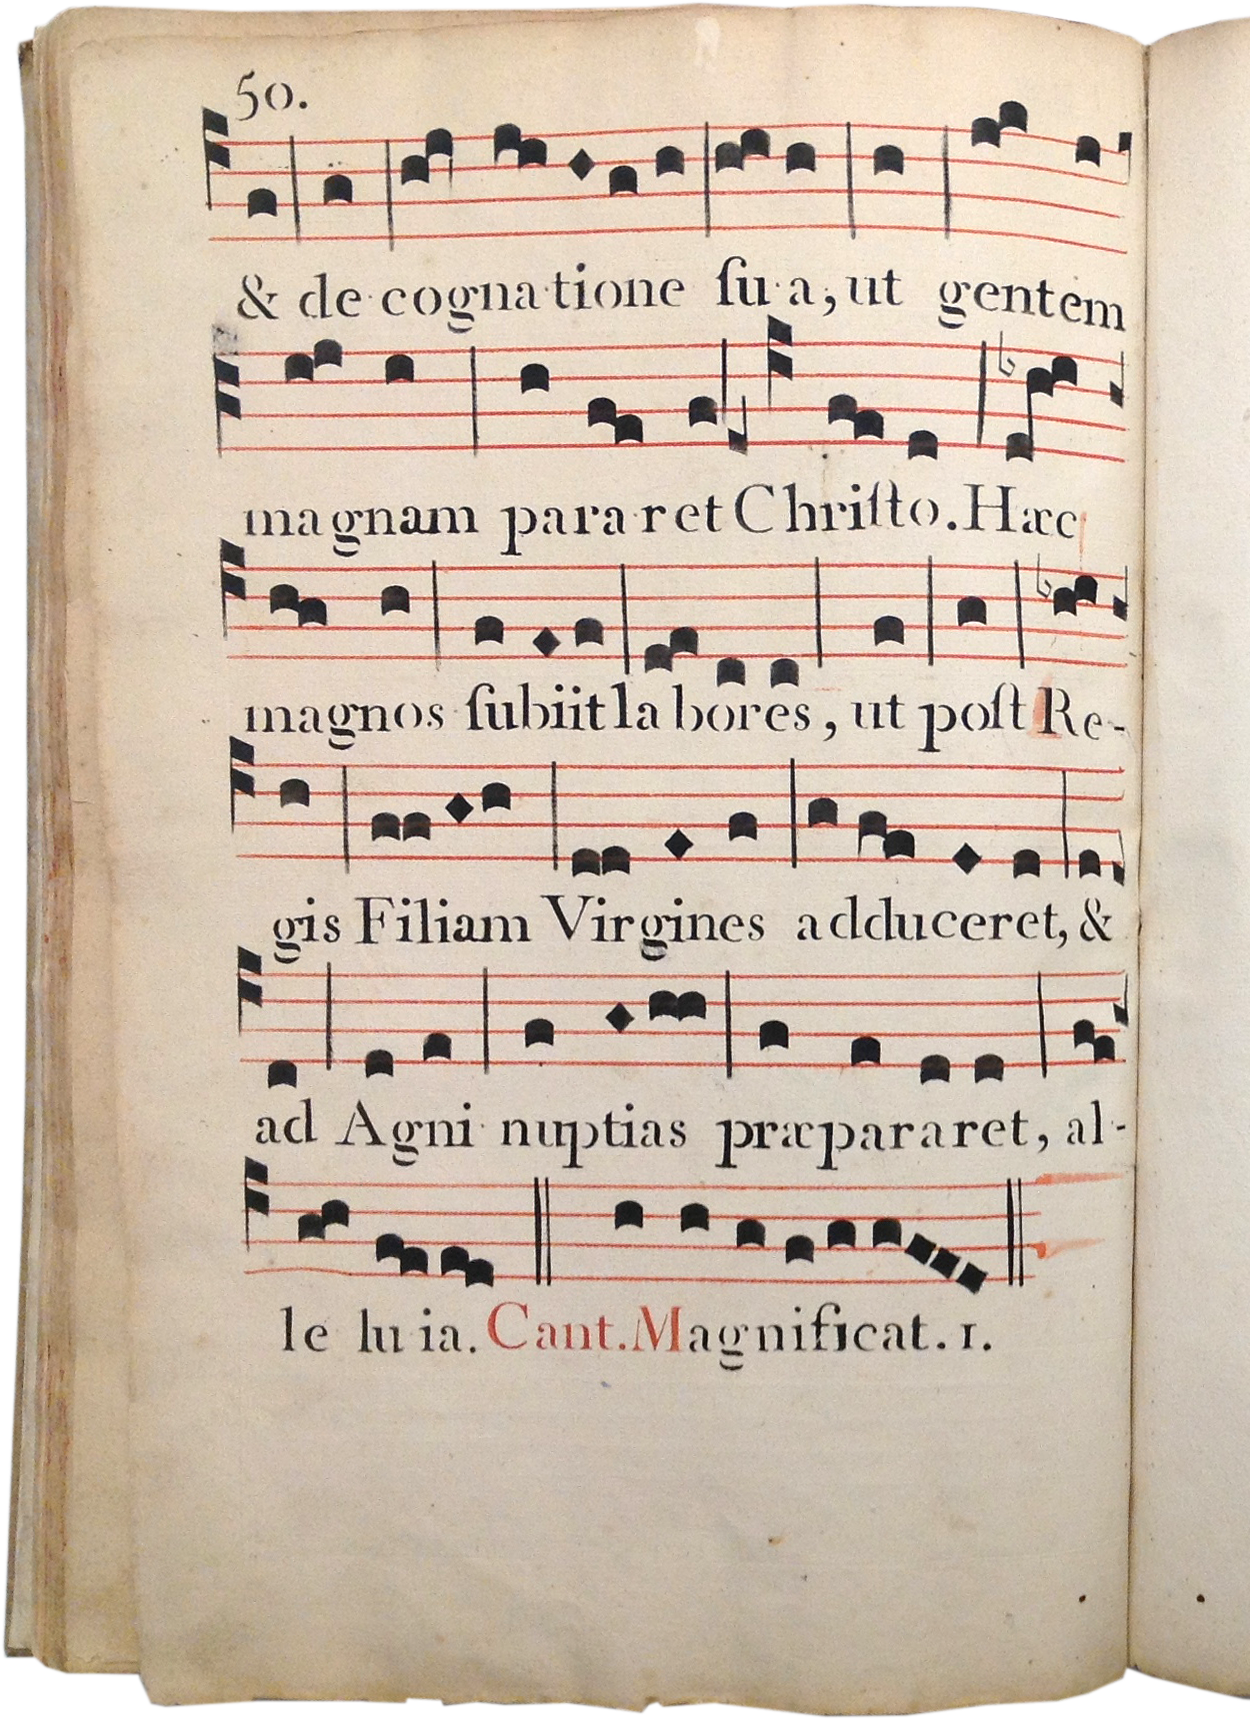 50.
& de cognatione ſua, ut gentem
magnam pararet Chriſto. Hæc
magnos ſubiit labores, ut poſt Re-
gis Filiam Virgines adduceret, &
ad Agni nuptias præpararet, al-
le luia. Cant. Magnificat. 1.